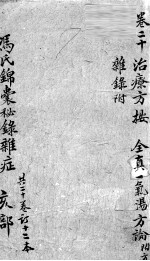 卷二十 治療方按 全真一氣湯方論 附方
雜錄附
共二十卷訂十二本
馮氏錦囊秘錄雜症 亥部